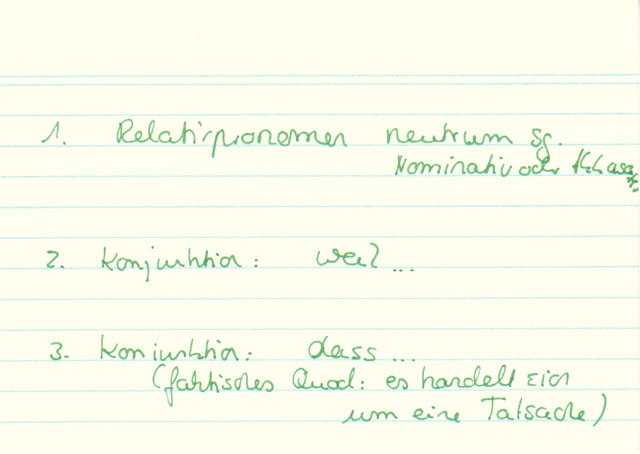 1. Relativpronomen neutrum sg.
Nominativ oder
2. Konjunktion: weil ...
3. Konjunktion: dass ...
(faktisches Quod: es handelt sich
um eine Tatsache)